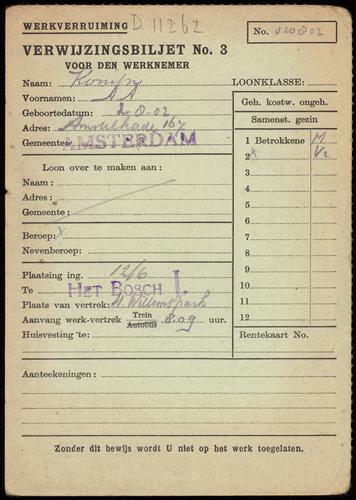 WERKVERRUIMING D 11262
No. 020802
VERWIJZINGSBILJET No. 3
VOOR DEN WERKNEMER
Naam:
Voornamen:
Geboortedatum: 2-8-02
Adres: Amstelkade 167
Gemeente: AMSTERDAM
LOONKLASSE:
Geh. kostw. ongeh.
Samenst. gezin
1 Betrokkene M
2 x Vr
3
4
5
6
7
8
9
10
11
12
Rentekaart No.
Loon over te maken aan:
Naam:
Adres:
Gemeente:
Beroep: x
Nevenberoep:
Plaatsing ing. 12/6
Te HET BOSCH I.
Plaats van vertrek: St. Willemspark
Aanvang werk-vertrek Trein Autobus 8.09 uur.
Huisvesting 'te:
Aanteekeningen:
Zonder dit bewijs wordt U niet op het werk toegelaten.